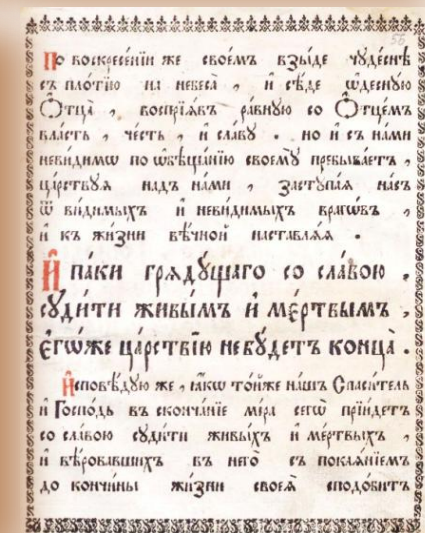 56
По воскресе́нїи же свое́мъ взы́де чꙋде́снѣ
съ пло́тїю на небеса̀ , и҆ сѣ́де ѡ҆деснꙋ́ю
Ѻ҆тца̀ , воспрїѧ́въ ра́внꙋю со Ѻ҆тце́мъ
вла́сть , че́сть , и҆ сла́вꙋ . но и҆ съ на́ми
неви́димѡ по ѡ҆бѣща́нїю своемꙋ̀ пребыва́етъ ,
ца́рствꙋѧ надъ на́ми , застꙋпа́ѧ насъ
ѿ ви́димыхъ и҆ неви́димыхъ врагѡ́въ ,
и҆ къ жи́зни вѣ́чной наставлѧ́ѧ .
И҆ па́ки грѧдꙋ́щаго со сла́вою ,
сꙋди́ти живы̑мъ и҆ ме́ртвымъ ,
є҆гѡ́же ца́рствїю не бꙋ́детъ конца̀ .
И҆сповѣ́дꙋю же , ꙗ҆́кѡ то́йже на́шъ Спаси́тель
и҆ Госпо́дь въ сконча́нїе мі́ра сегѡ̀ прїи́детъ
со сла́вою сꙋди́ти живы́хъ и҆ ме́ртвыхъ ,
и҆ вѣ́ровавшихъ въ него̀ съ покаѧ́нїемъ
до кончи́ны жи́зни своеѧ̀ сподо́битъ